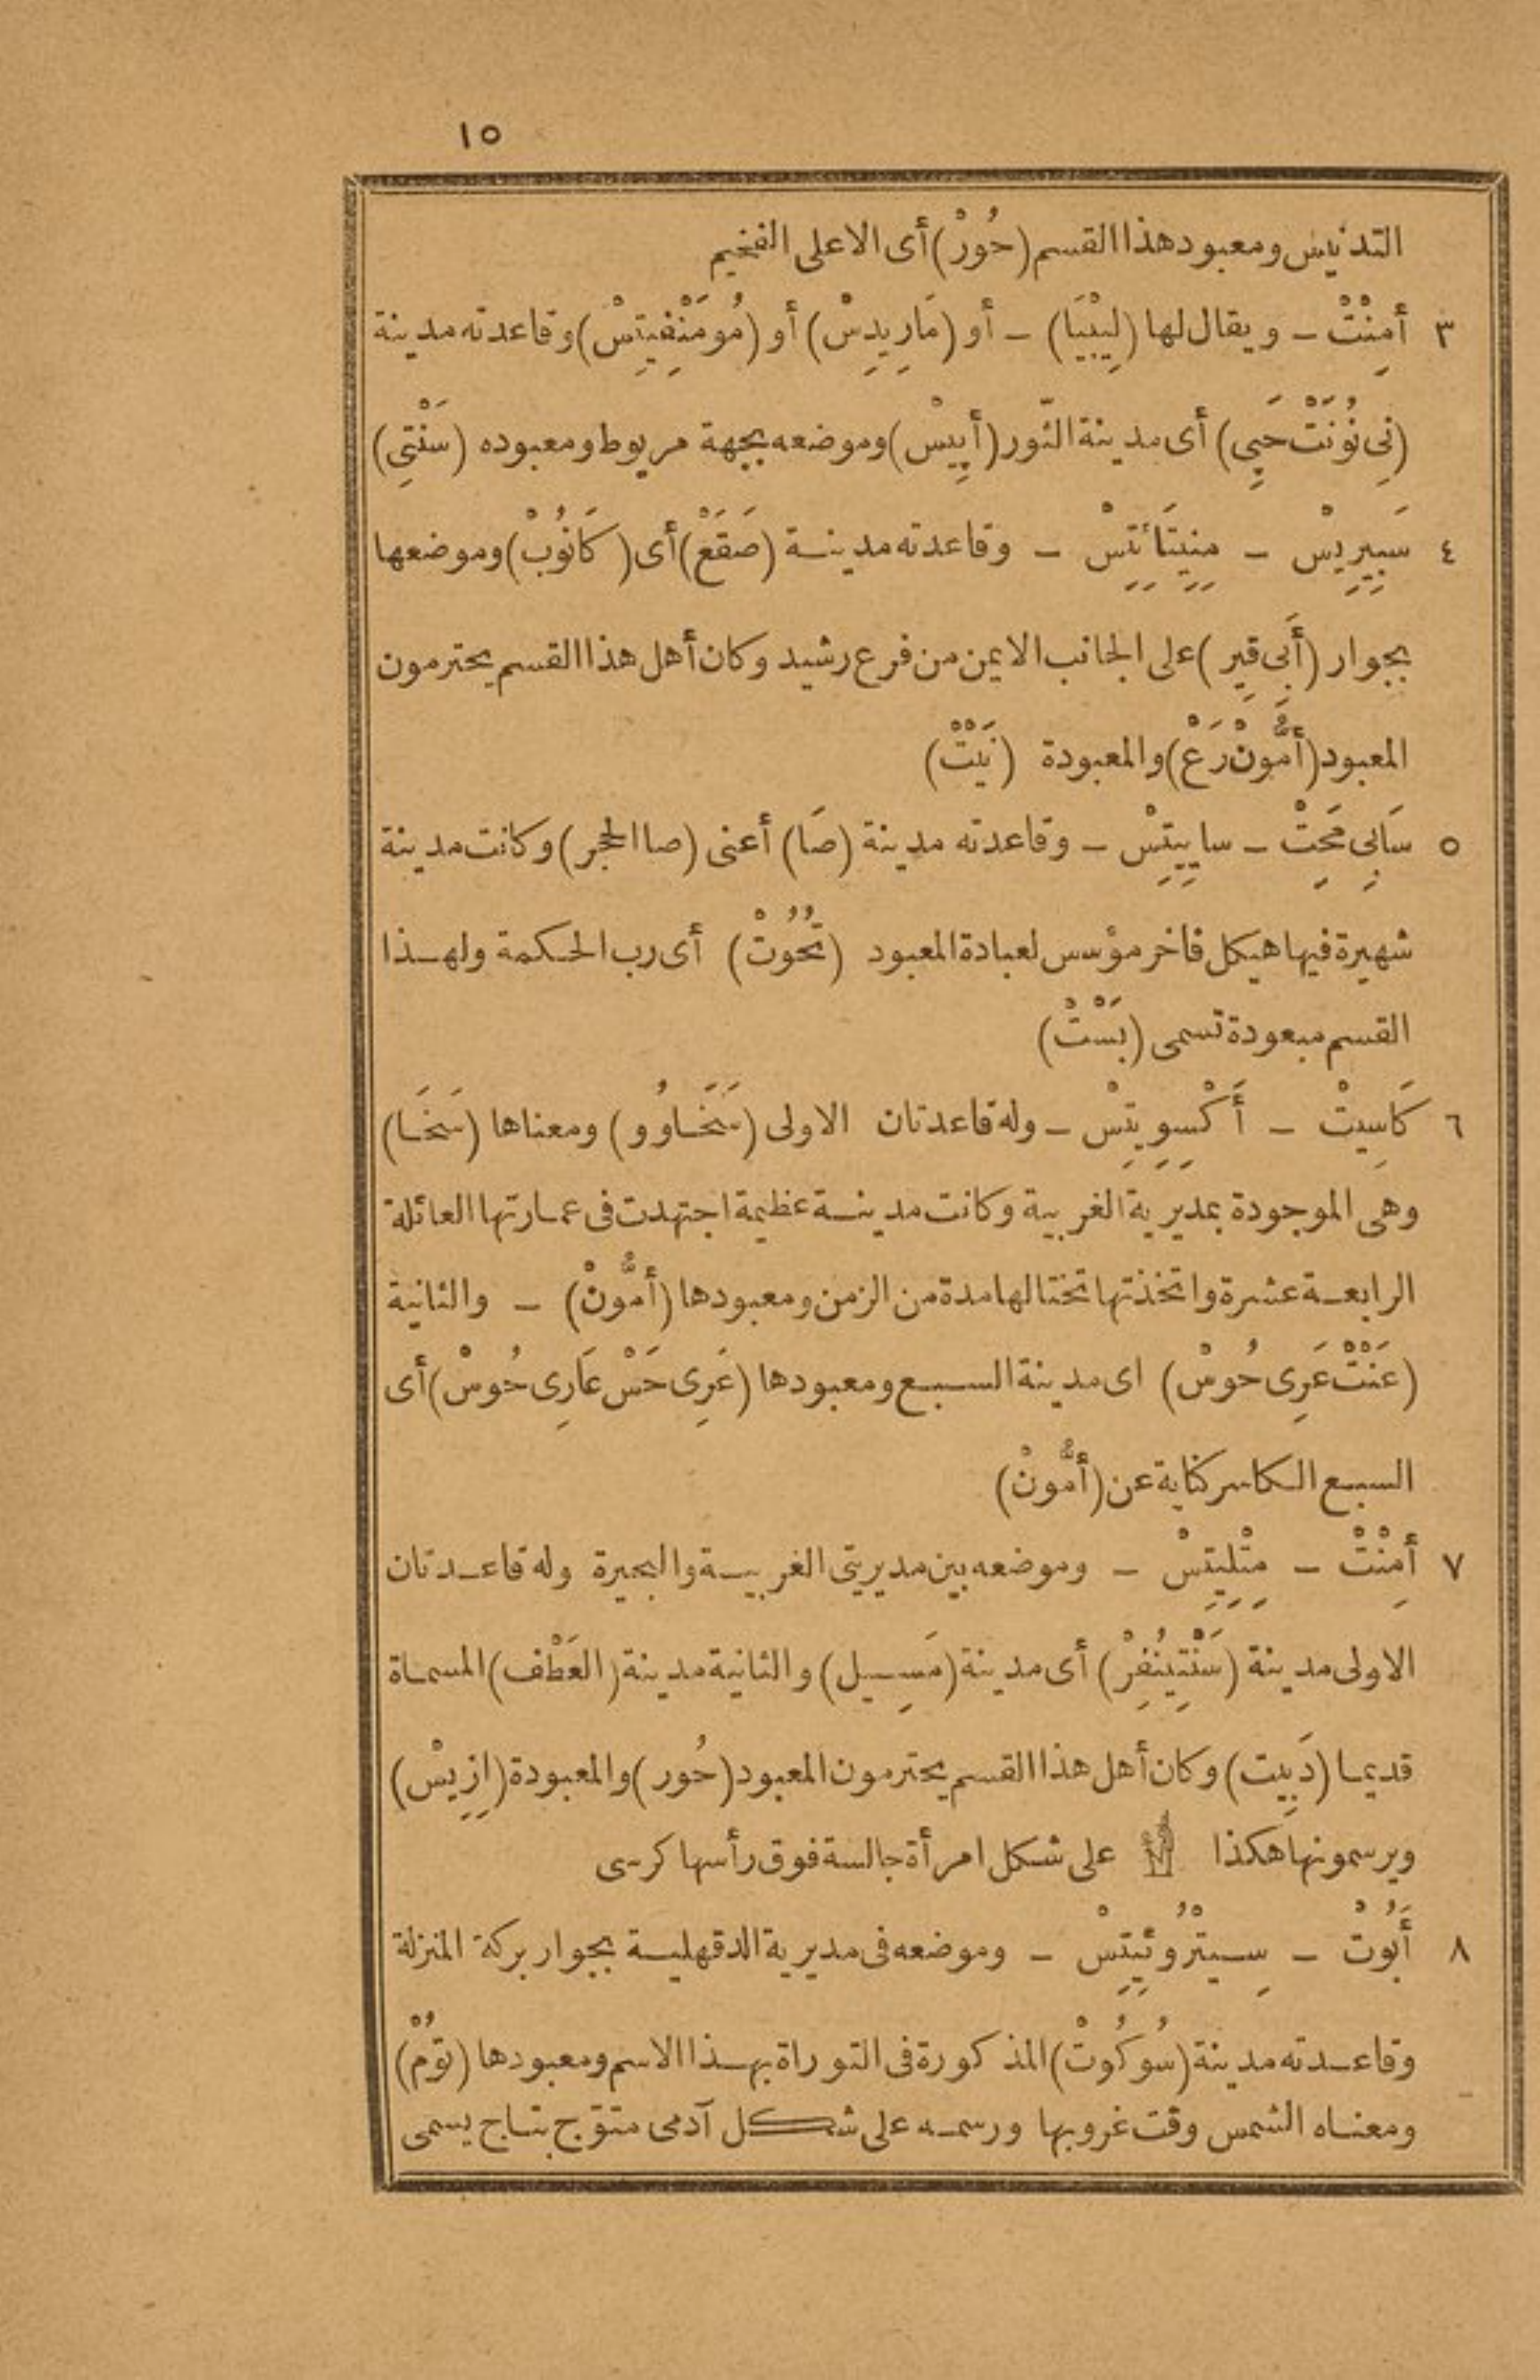 ١٥
التدنيس ومعبود هذا القسم (حُورْ) أى الاعلى الفخيم
٣ أمِنْتْ ـ ويقال لها (لِيبْيَا) ـ أو (مَارِيدِسْ) أو (مُومَنْفِيتِسْ) وقاعدته مدينة
(نِى نُونَتْ حَپِى) أى مدينة الثور (أپِيسْ) وموضعه بجهة مريوط ومعبوده (سَنْتِى)
٤ سَبِيرِيسْ ـ مِنِيتَائِتِسْ ـ وقاعدته مدينة (صَقَعْ) أى (كَانُوبْ) وموضعها
بجوار (أَبِى قِير) على الجانب الايمن من فرع رشيد وكان أهل هذا القسم يحترمون
المعبود (أمُّونْ رَعْ) والمعبودة (نَيْتْ)
٥ سَابِى مَحِتْ ـ ساييتِسْ ـ وقاعدته مدينة (صَا) أعنى (صا الحجر) وكانت مدينة
شهيرة فيها هيكل فاخر مؤسس لعبادة المعبود (تُحُوتْ) أى رب الحكمة ولهذا
القسم مبعودة تسمى (بَسْتْ)
٦ كَاسِيتْ ـ أَكْسِوِيتِسْ ـ وله قاعدتان الاولى (سَخَاوُو) ومعناها (سَخَا)
وهى الموجودة بمديرية الغربية وكانت مدينة عظيمة اجتهدت فى عمارتها العائلة
الرابعة عشرة واتخذتها تختالها مدة من الزمن ومعبودها (أمُّونْ) ـ والثانية
(عَنْتْ عَرِى حُوسْ) اى مدينة السبع ومعبودها (عَرِى حَسْ عَارِى حُوسْ) أى
السبع الكاسر كناية عن (أمُّونْ)
٧ أمِنْتْ ـ مِتْلِيتِسْ ـ وموضعه بين مديريتى الغربية والبحيرة وله قاعدتان
الاولى مدينة (سَنْتِينُفِرْ) أى مدينة (مَسِيل) والثانية مدينة (العَطْف) المسماة
قديما (دَبِيت) وكان أهل هذا القسم يحترمون المعبود (حُور) والمعبودة (اِزِيسْ)
ويرسمونها هكذا على شكل امرأة جالسة فوق رأسها كرسى
٨ أَبُوتْ ـ سِيتْرُوئِيتِسْ ـ وموضعه فى مديرية الدقهلية بجوار بركة المنزلة
وقاعدته مدينة (سُوكُوتْ) المذكورة فى التوراة بهذا الاسم ومعبودها (تُومْ)
ومعناه الشمس وقت غروبها ورسمه على شكل آدمى متوّج بتاج يسمى